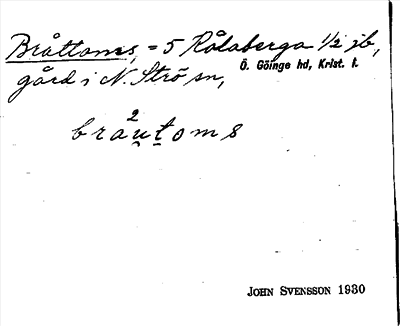 Bråttoms, = 5 Rålaberga 1/2 jb,
gård i N. Strö sn, Ö. Göinge hd, Krist. l.
2
bråu̯t̠oms
JOHN SVENSSON 1930